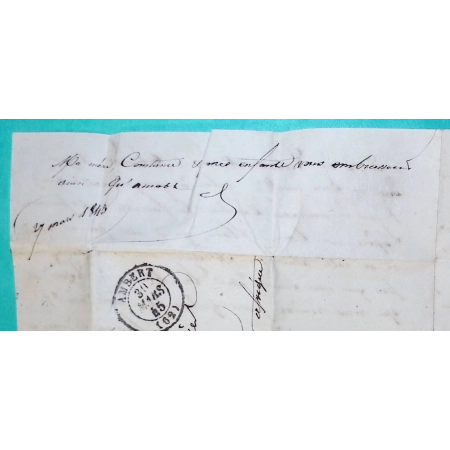 Ma mère Constance & mes enfants vous embrassent
ainsi qu'amable
29 mars 1845
AMBERT
30
MARS
45
(62)